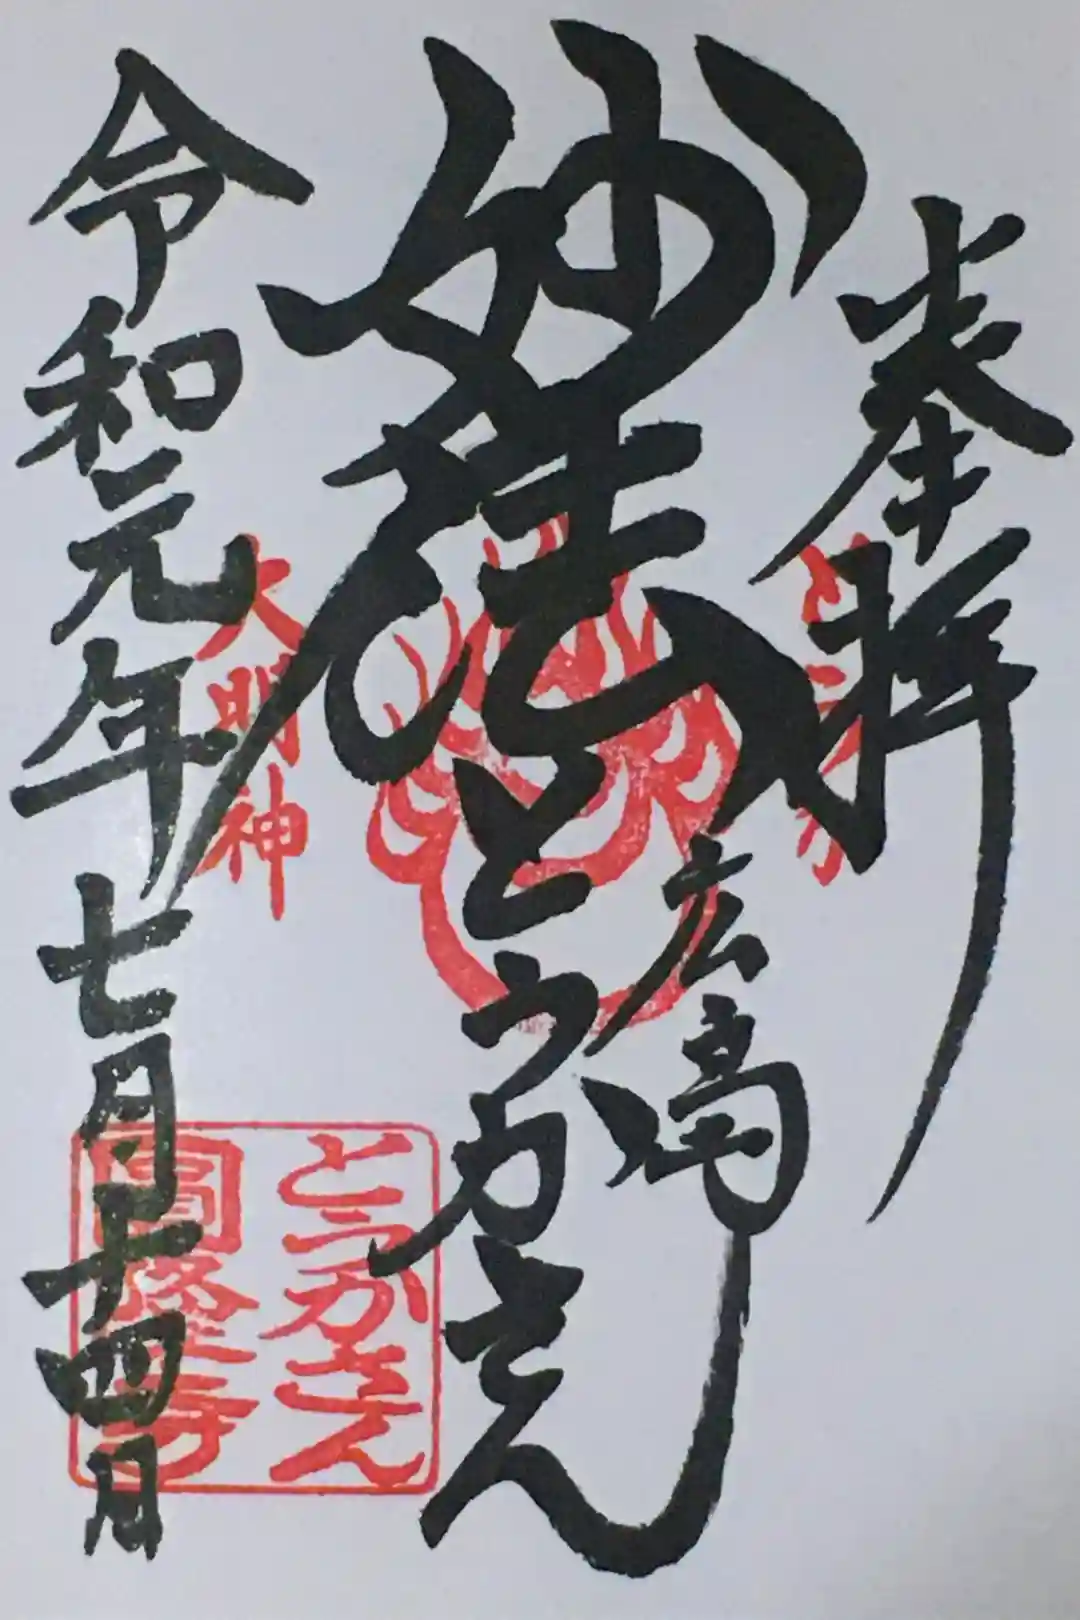 奉拝
妙法
広島
とうかさん
令和元年七月十四日
大明神
とうかさん
圓隆寺